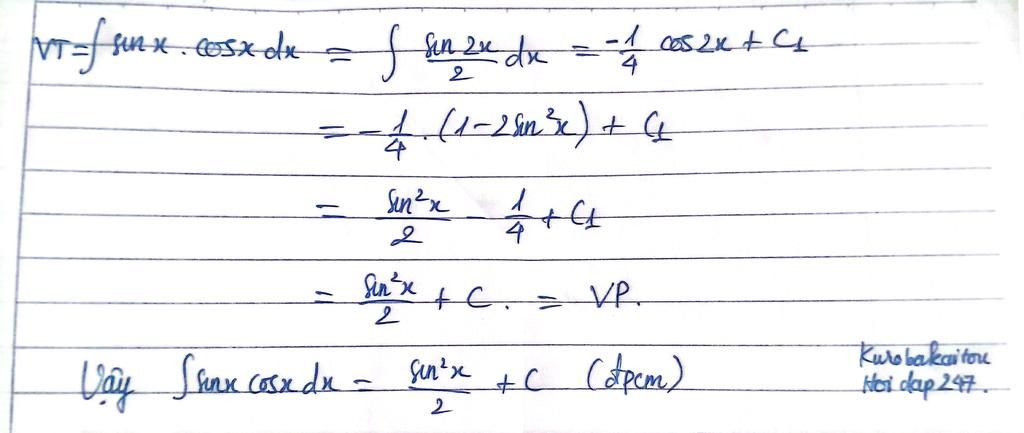 VT = ∫ sin x . cosx dx = ∫ sin 2x / 2 dx = -1/4 cos 2x + C₁
= -1/4 . (1 - 2 sin²x) + C₁
= sin²x / 2 - 1/4 + C₁
= sin²x / 2 + C. = VP.
Vậy ∫ sinx cosx dx = sin²x / 2 + C (đpcm)
Kurobakaitou
Hoi dap 247.